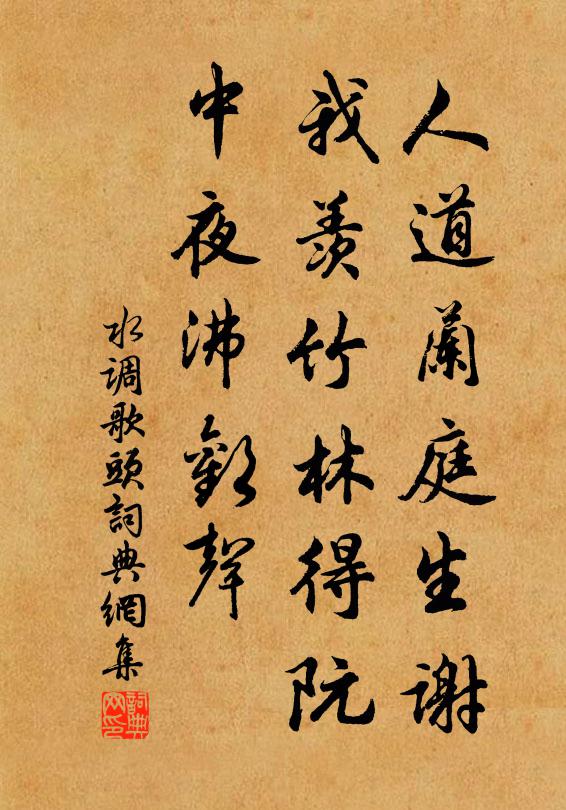 人道蘭庭生謝
我羨竹林得阮
中夜沸歡聲
水调歌頭詞典網集
詞典
网印